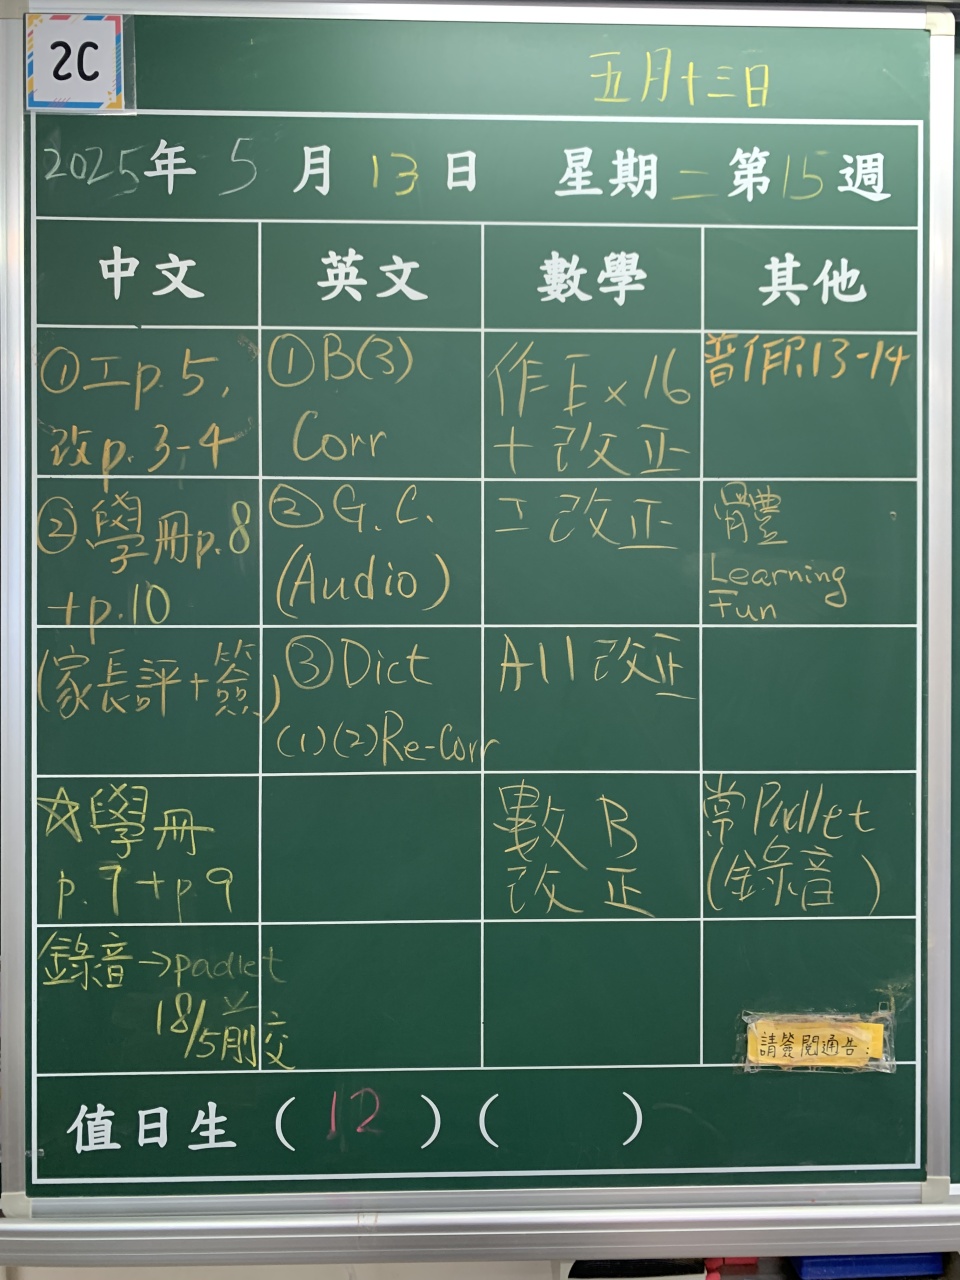 2C
五月十三日
2025年 5 月 13 日 星期二第15週
中文 英文 數學 其他
①工p.5,
改p.3-4
①B(3)
Corr
作工x16
+改正
普作p.13-14
②學冊p.8
+p.10
②G.C.
(Audio)
工改正
體
Learning
Fun
(家長評+簽)
③Dict
(1)(2)Re-Corr
All改正
☆學冊
p.7+p.9
數B
改正
常Padlet
(錄音)
錄音→padlet
18/5前交
請簽閱通告:
值日生(12)( )